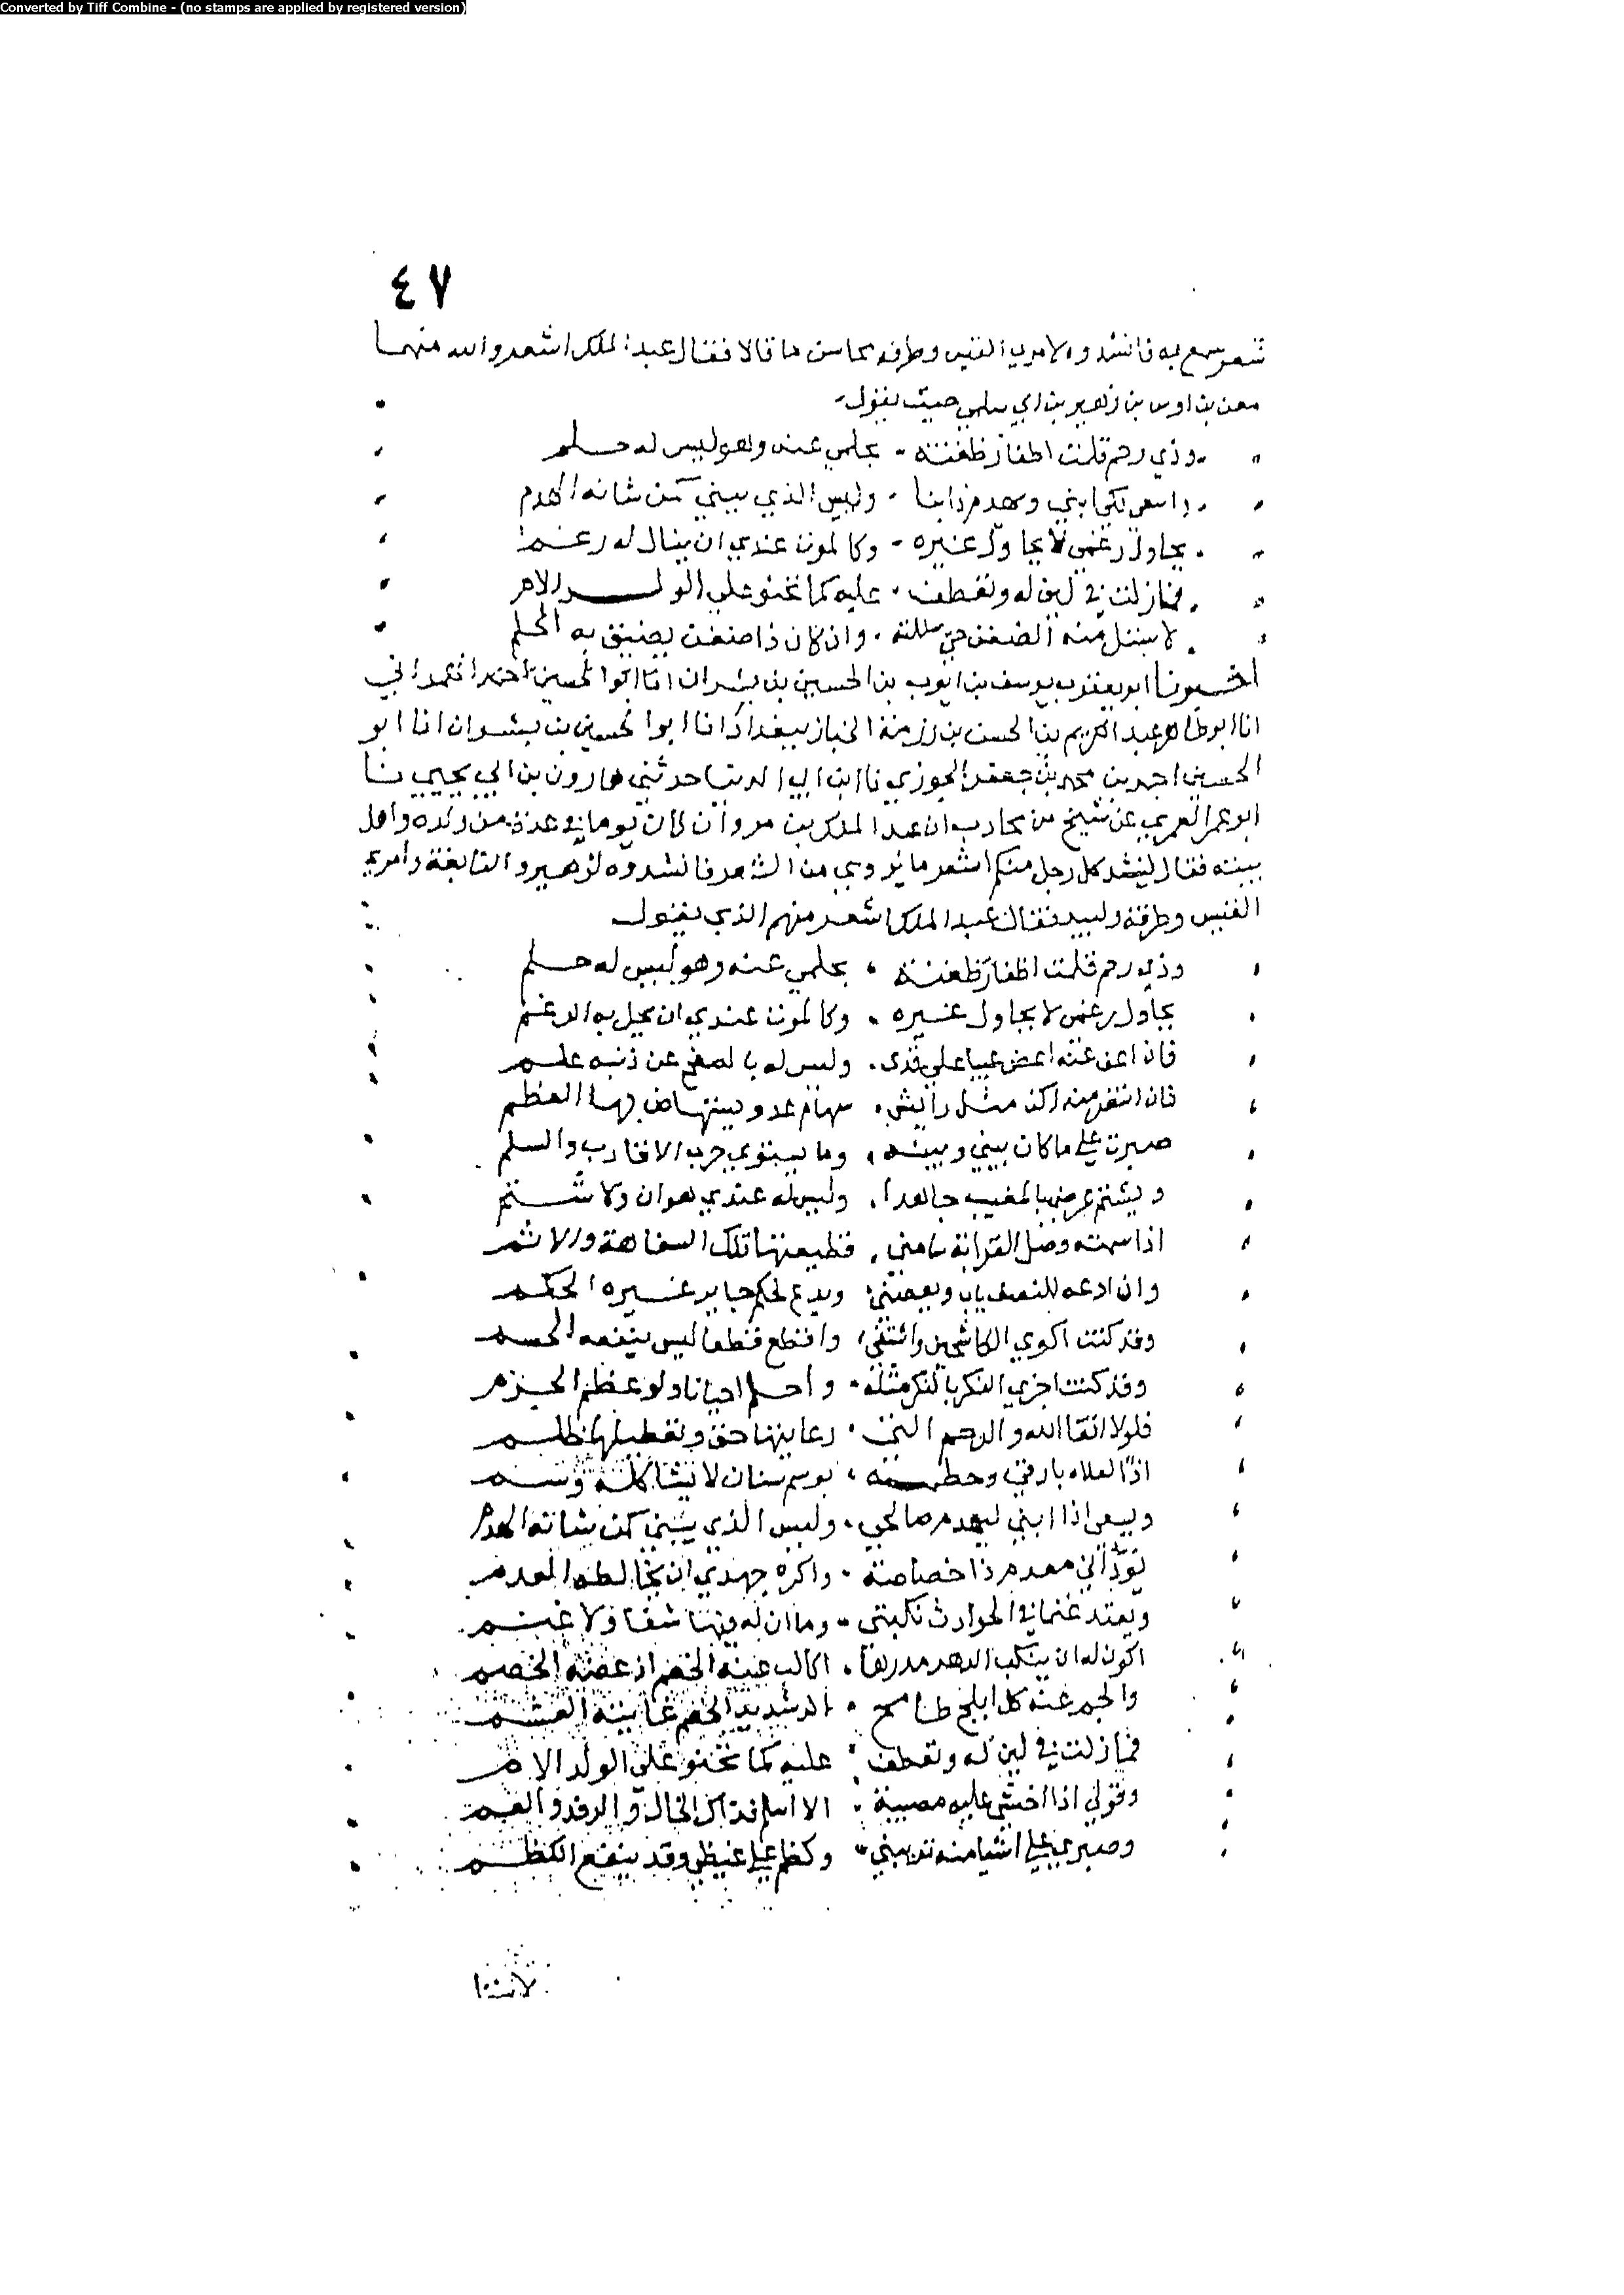 Converted by Tiff Combine - (no stamps are applied by registered version)
٤٧
شعر سمع به فانشدوه لامري القيس وطرفه محاسن ما قالا فقال عبد الملك اشعر والله منهما
معن بن اوس بن زهير بن ابي سلمى حيث يقول
وذي رحم قلمت اظفار ظغنه بحلمي عنه وهو ليس له حلم
اسعى لكي ابني ويهدم دابنا وليس الذي يبني كمن شانه الهدم
يحاول رغمي لا يحاول غيره وكالموت عندي ان ينال له رغم
فما زلت في لين له وتعطف عليه كما تحنو على الولد الام
لاستل منه الضغن حتى سللته وان كان ذا ضغن يضيق به الحلم
اخبرنا ابو يعقوب يوسف بن ايوب بن الحسين
انا ابو طاهر عبد الكريم بن الحسن بن رزمة الخباز ببغداد انا ابو الحسين بن بشران انا ابو
الحسين احمد بن محمد بن جعفر الجوزي نا ابن ابي الدنيا حدثني هارون بن ابي يحيى نا
ابو عمر العمري عن شيخ من محارب ان عبد الملك بن مروان كان يوما في عدة من ولده واهل
بيته فقال لينشد كل رجل منكم اشعر ما يروي من الشعر فانشدوه لزهير والنابغة وامري
القيس وطرفة ولبيد فقال عبد الملك اشعر منهم الذي يقول
وذي رحم قلمت اظفار ظغنه بحلمي عنه وهو ليس له حلم
يحاول رغمي لا يحاول غيره وكالموت عندي ان يحل به الرغم
فان اعف عنه اغض عينا على قذى وليس له بالصفح عن ذنبه علم
فان انتصر منه اكن مثل رايش سهام عدو يستهاض بها العظم
صبرت على ما كان بيني وبينه وما يستوي حرب الاقارب والسلم
ويشتم عرضي بالمغيب جاهدا وليس له عندي هوان ولا شتم
اذا سمته وصل القرابة سامني قطيعتها تلك السفاهة والاثم
وان ادعه للنصف ياب ويعصني ويدع لحكم جاير غيره الحكم
وقد كنت اكوي الكاشحين واشتفي واقطع قطعا ليس ينفعه الحسم
وقد كنت اجزي النكر بالنكر مثله واحلم احيانا ولو عظم الجرم
فلولا اتقا الله والرحم التي رعايتها حق وتعطيلها ظلم
اذا لعلاه بارقي وخطمته بوسم سنان لا يشاكله وسم
ويسعى اذا ابني ليهدم صالحي وليس الذي يبني كمن شانه الهدم
يود اني معدم ذا خصاصة واكره جهدي ان يخالطه العدم
ويعتد غنما في الحوادث نكبتي وما ان له فيها شفا ولا غنم
اكون له ان ينكب الدهر مدرها اكالب عنه الخصم اذ عضه الخصم
والجم عنه كل ابلخ طامح الد شديد الخصم غايته الغشم
فما زلت في لين له وتعطف عليه كما تحنو على الولد الام
وقولي اذا اخشى عليه مصيبة الا اسلم فداك الخال والرفد والعم
وصبري على اشيا منه تريبني وكظمي على غيظي وقد ينفع الكظم